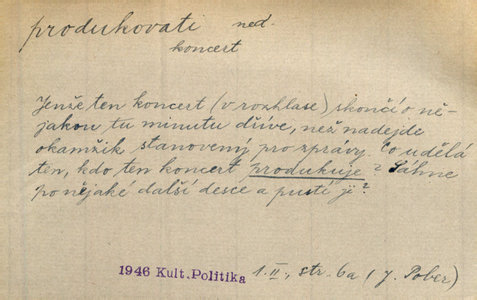 produkovati ned.
koncert
Jenže ten koncert (v rozhlase) skončí o ně-
jakou tu minutu dříve, než nadejde
okamžik stanovený pro zprávy. Co udělá
ten, kdo ten koncert produkuje? Sáhne
po nějaké další desce a pustí ji?
1946 Kult. Politika 1. II., str. 6a (J. Pober)